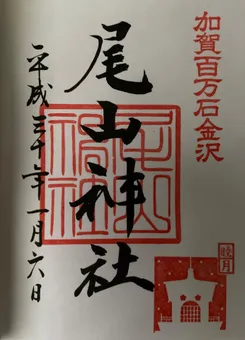 加賀百万石金沢
尾山神社
平成三十年一月六日
尾山神社
睦月